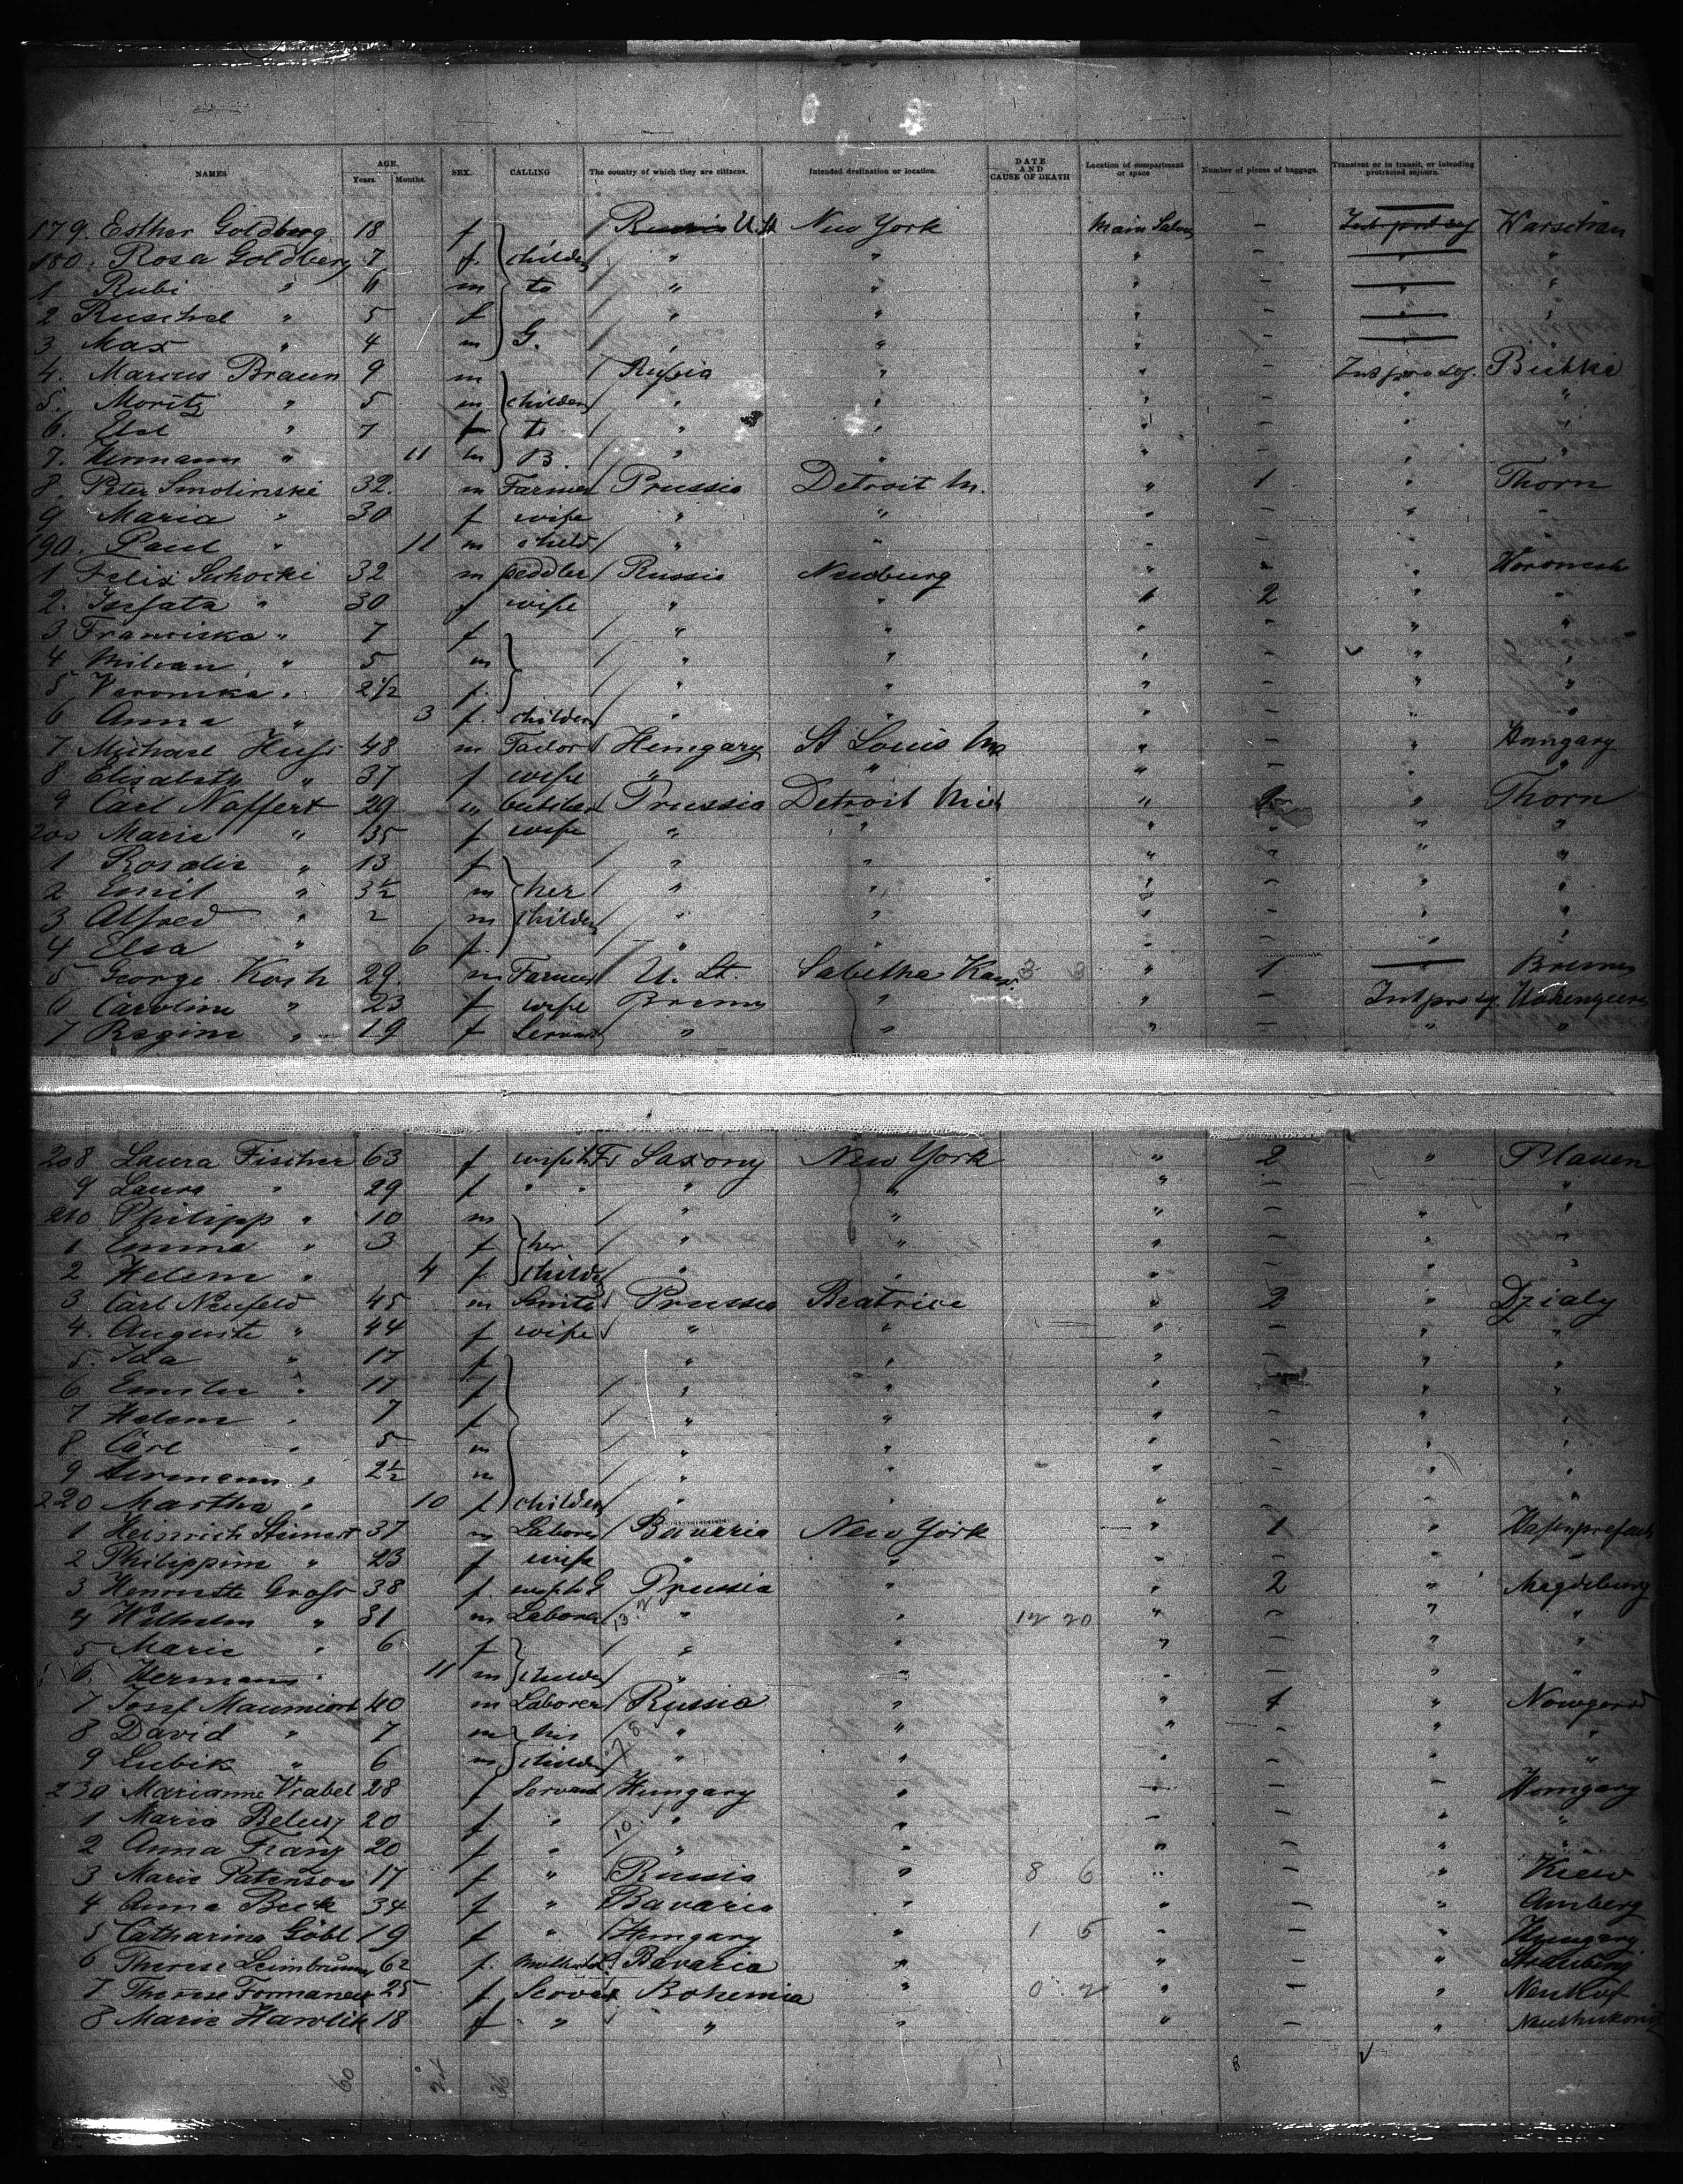 NAMES AGE. Years. Months. SEX. CALLING The country of which they are citizens. Intended destination or location. DATE AND CAUSE OF DEATH Location of compartment or space Number of pieces of baggage. Transient or in transit, or intending protracted sojourn.
179. Esther Goldberg 18 f Russia U.St New York Main Salon - Warschau
180. Rosa Goldberg 7 f. children " " " - " "
1 Rubi " 6 m to " " " - " "
2 Ruschel " 5 f " " " - " "
3 Max " 4 m G. " " " - " "
4. Marcus Braun 9 m Russia " " -
5. Moritz " 5 m children " " " - " "
6. " 7 f to " " " - " "
7. Hermann " 11 m B. " " " - " "
8. Peter Smolinski 32. m Farmer Prussia Detroit M. " 1 " Thorn
9 Maria " 30 f wife " " " - " "
190. Paul " 11 m child " " " - "
1 Felix Suchocki 32 m peddler Russia Newburg " " "
2. " 30 f wife " " " 2 " "
3 Franziska " 7 f " " " - " "
4 " 5 m " " " - " "
5 Veronika " 2 1/2 f. " " " - " "
6 Anna " 3 f. children " " " - " "
7 Michael 48 m Tailor Hungary St Louis Mo " - " Hungary
8 Elisabeth " 37 f wife " " " - " "
9 Carl Naffert 29 m Prussia Detroit Mich " " Thorn
200 Marie " 35 f wife " " " - " "
1 Rosalie " 13 f " " " - " "
2 Emil " 3 1/2 m her " " " - " "
3 Alfred " 2 m children " " " - " "
4 Elsa " 6 f. " " " - " "
5 George Koch 29. m Farmer U. St. Sabetha Kans. " 1 Bremen
6 Caroline " 23 f wife Bremen " " -
7 Regine " 19 f Servant " " " - " "
208 Laura Fischer 63 f Saxony New York " 2 " Plauen
9 Laura " 29 f " " " " " - "
210 Philipp " 10 m " " " - "
1 Emma " 3 f her " " " - "
2 Helene " 4 f. " " " - " "
3 Carl Neufeld 45 m Smith Prussia Beatrice " 2 " Dzialy
4. Auguste " 44 f wife " " " - " "
5. Ida " 17 f " " " - " "
6 Emilie " 11 f " " " " "
7 Helene " 7 f " " " - " "
8 Carl " 5 m " " " - " "
9 Hermann " 2 1/2 m " " " - " "
220 Martha " 10 f children " " " - " "
1 Heinrich Steinert 37 m Laborer Bavaria New York " 1 "
2 Philippine " 23 f wife " " " - " "
3 Henriette Gross 38 f. Prussia " " 2 " Magdeburg
4 Wilhelm " 31 m Laborer " " 12 20 " - " "
5 Marie " 6 f " " " - " "
6. Hermann " 11 m children " " " - " "
7 Josef 40 m Laborer Russia " " 1 "
8 David " 7 m his " " " - " "
9 Lubik " 6 m children " " " - " "
230 Marianne Vrabel 28 f Servant Hungary " " - " Hungary
1 Maria 20 f " " " " - " "
2 Anna Franz 20 f " " " " - " "
3 Marie 17 f " Russia " 8 6 " - " Kiew
4 Anna Beck 34 f " Bavaria " " - " Amberg
5 Catharina Göbl 19 f " Hungary " 1 5 " - " Hungary
6 Therese 62 f. Bavaria " " - " Straubing
7 Therese Formanek 25 f Servant Bohemia " 0 2 " - " Neuhof
8 Marie Hawlik 18 f " " " " - "